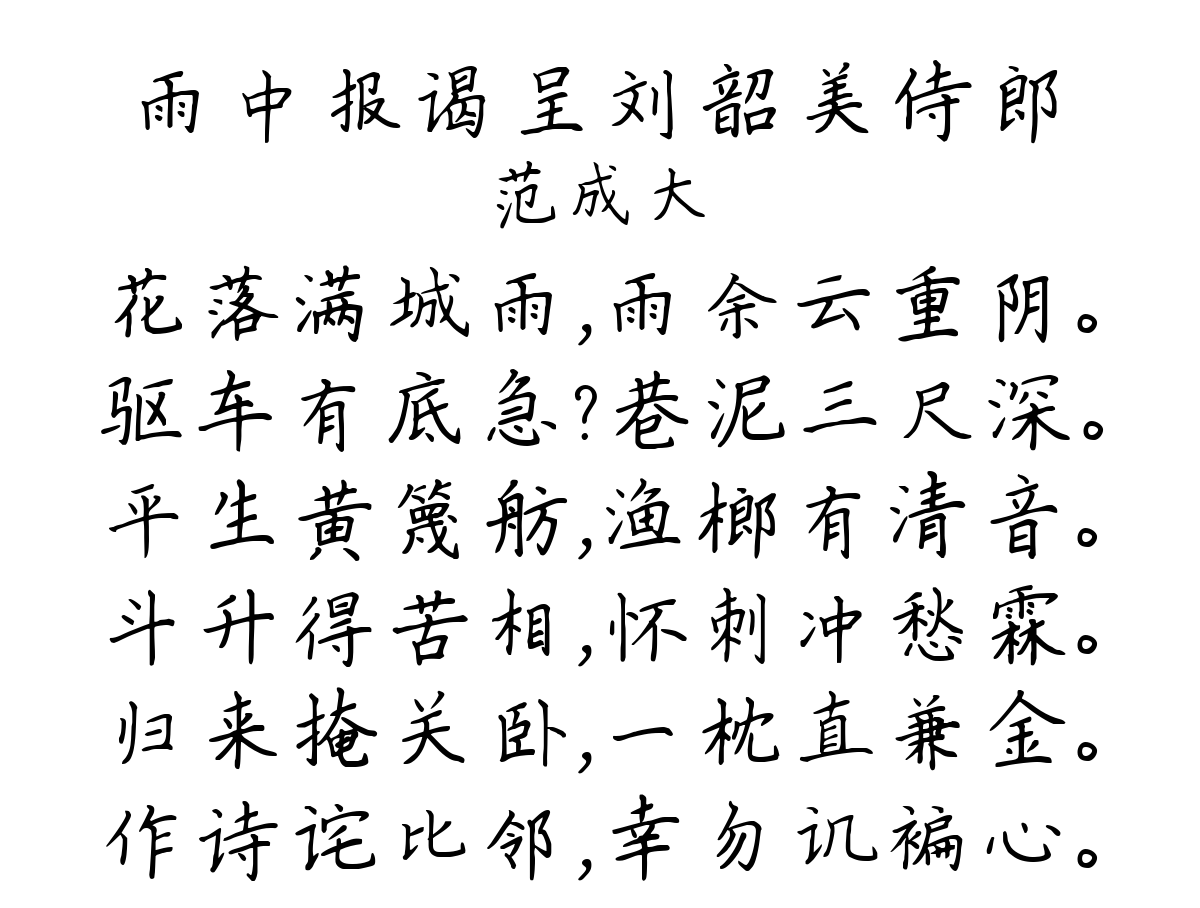 雨中报谒呈刘韶美侍郎
范成大
花落满城雨,雨余云重阴。
驱车有底急?巷泥三尺深。
平生黄篾舫,渔榔有清音。
斗升得苦相,怀刺冲愁霖。
归来掩关卧,一枕直兼金。
作诗诧比邻,幸勿讥褊心。